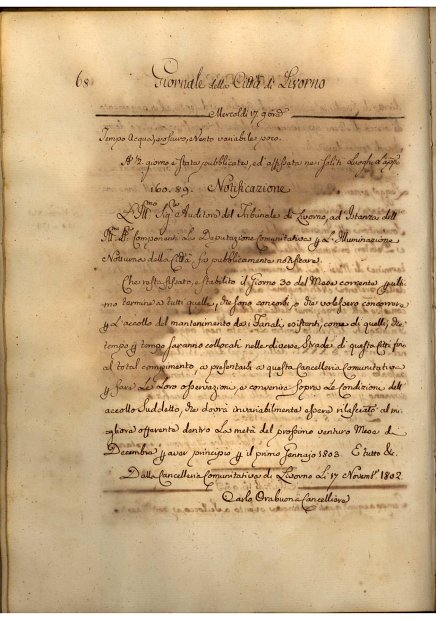 68 Giornale della Città di Livorno
Mercoldì 17. 9bre
Tempo Acqua, e oscuro, e Vento variabile poco.
A 12. giorno è stata pubblicata, ed affissata nei soliti Luoghi l'app.
160. 89. Notificazione
L'Ill.mo Sig.re Auditore del Tribunale di Livorno, ad Istanza dell
Ill. componenti La Deputazione Comunitativa p. l'Illuminazione
Notturna della Città, fa pubblicamente notificare.
Che resta fissato, e stabilito il Giorno 30 del Mese corrente p. ulti
mo termine a tutti quelli, che sono concorsi, o che volessero concorrere
p. L'accollo del mantenimento dei Fanali, esistenti, come di quelli, che
tempo p. tempo saranno collocati nelle diverse Strade di questa Città fino
al total compimento, a presentarsi a questa Cancelleria Comunitativa
p. fare Le Loro osservazioni, e convenire sopra Le Condizioni dell
accollo suddetto, che dovrà invariabilmente essere rilasciato al mi
gliore offerente dentro La metà del prossimo venturo Mese di
Decembre p. aver principio p. il primo Gennajo 1803. E tutto &c.
Dalla Cancelleria Comunitativa di Livorno Li 17 Novemb.e 1802.
Carlo Orabuona Cancelliere